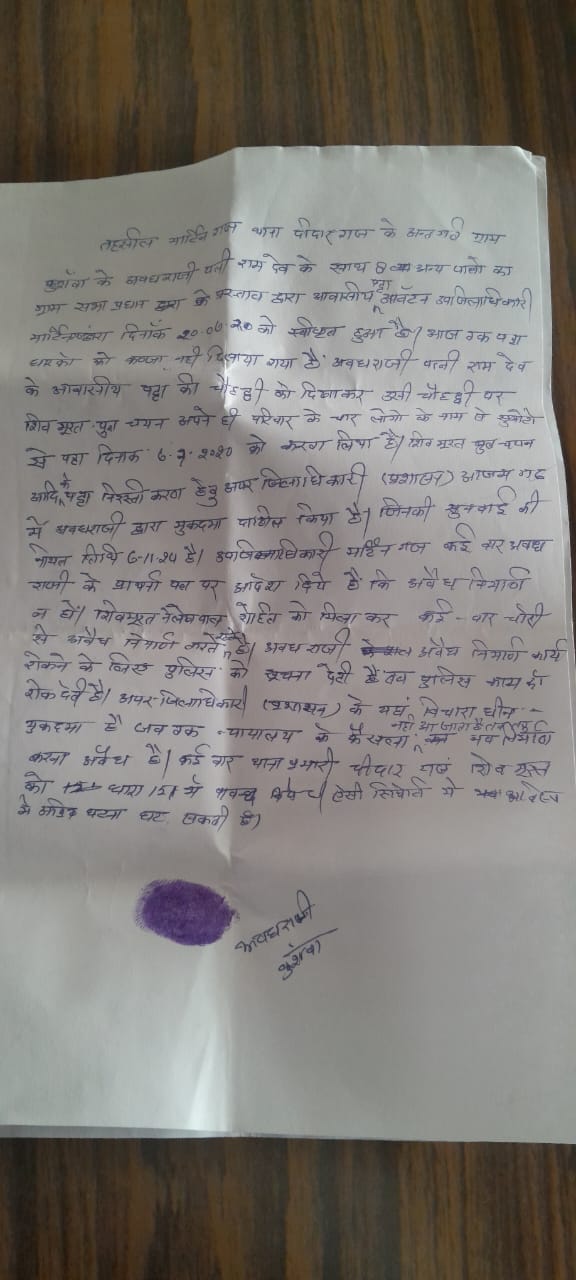 तहसील मार्टिनगंज थाना दीदारगंज के अन्तर्गत ग्राम
कुशवां के अवधराजी पत्नी राम देव के साथ 8 अन्य पात्रों का
ग्राम सभा प्रधान के प्रस्ताव द्वारा आवासीय पट्टा आवंटन उपजिलाधिकारी
दिनांक 20.06.20 को स्वीकृत हुआ है। आज तक पट्टा
धारकों को कब्जा नहीं दिलाया गया है अवधराजी पत्नी राम देव
के आवासीय पट्टा की चौहद्दी को दिखाकर उसी चौहद्दी पर
शिव मूरत पुत्र चयन अपने ही परिवार के चार लोगो के नाम से
से पट्टा दिनांक 6.7.2020 को करवा लिया है। शिव मूरत पुत्र चयन
आदि के पट्टा निरस्ती करण हेतु अपर जिलाधिकारी (प्रशासन) आजमगढ़
में अवधराजी द्वारा मुकदमा दाखिल किया है। जिनकी सुनवाई की
नीयत तिथि 6.11.24 है। उपजिलाधिकारी मार्टिनगंज कई बार अवध
राजी के प्रार्थना पत्र पर आदेश दिये हैं कि अवैध निर्माण
न हो। शिवमूरत लेखपाल रोहित को मिला कर कई-बार चोरी
से अवैध निर्माण करते है। अवधराजी अवैध निर्माण कार्य
रोकने के लिए पुलिस को सूचना देती है तब पुलिस काम को
रोक देती है। अपर जिलाधिकारी (प्रशासन) के यहां विचाराधीन
मुकदमा है जब तक न्यायालय के फैसला नही आ जाता है तब तक निर्माण
करना अवैध है। कई बार थाना प्रभारी दीदार गंज शिव मूरत
को धारा 151 में पाबन्द किये। ऐसी स्थिति में
घटना घट सकती है।
अवधराजी
कुशवां